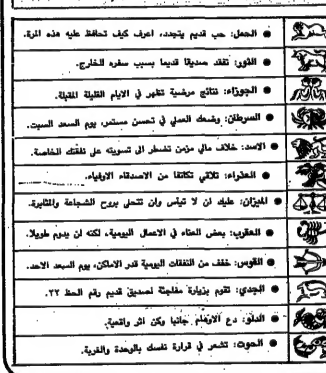 ● الحمل: حب قديم يتجدد، اعرف كيف تحافظ عليه هذه المرة.
● الثور: تفقد صديقا قديما بسبب سفره للخارج.
● الجوزاء: نتائج مرضية تظهر في الايام القليلة المقبلة.
● السرطان: وضعك العملي في تحسن مستمر، يوم السعد السبت.
● الاسد: خلاف مالي مزمن تضطر الى تسويته على نفقتك الخاصة.
● العذراء: تلاقي تكاتفا من الاصدقاء الاوفياء.
● الميزان: عليك ان لا تيأس وان تتحلى بروح الشجاعة والمثابرة.
● العقرب: بعض العناء في الاعمال اليومية، لكنه لن يدوم طويلا.
● القوس: خفف من النفقات اليومية قدر الامكان، يوم السعد الاحد.
● الجدي: تقوم بزيارة مفاجئة لصديق قديم رقم الحظ ٢٢.
● الدلو: دع الاوهام جانبا وكن اكثر واقعية.
● الحوت: تشعر في قرارة نفسك بالوحدة والغربة.